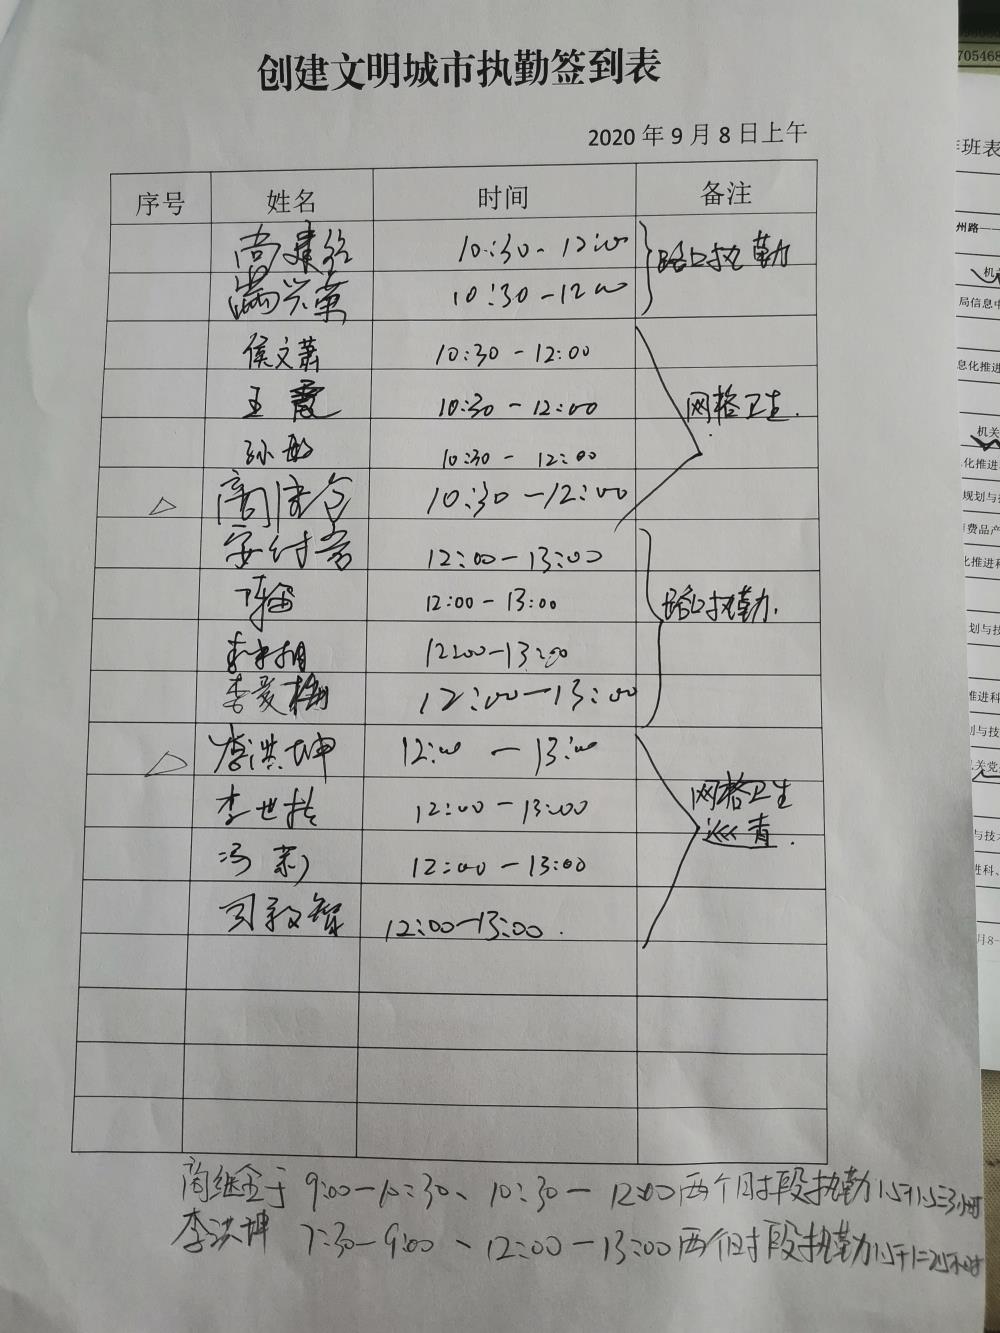 创建文明城市执勤签到表
2020年9月8日上午
序号 姓名 时间 备注
尚建 10:30-12:00 路口执勤
满兴 10:30-12:00
侯文萧 10:30-12:00
王霞 10:30-12:00 网格卫生.
孙 10:30-12:00
△ 10:30-12:00
安付 12:00-13:00
12:00-13:00 路口执勤.
12:00-13:00
李爱梅 12:00-13:00
△ 李洪坤 12:00-13:00
李世 12:00-13:00 网格卫生
巡青.
冯莉 12:00-13:00
司毅智 12:00-13:00.
于9:00-10:30、10:30-12:00两个时段执勤1.5+1.5=3小时
李洪坤 7:30-9:00、12:00-13:00两个时段执勤1.5+1=2.5小时
705468
班表
州路——
机
局信息中
息化推进
机关
化推进
规划与
费品产
化推进科
划与技
推进科
划与技
关党
与技术
进科、
月8-